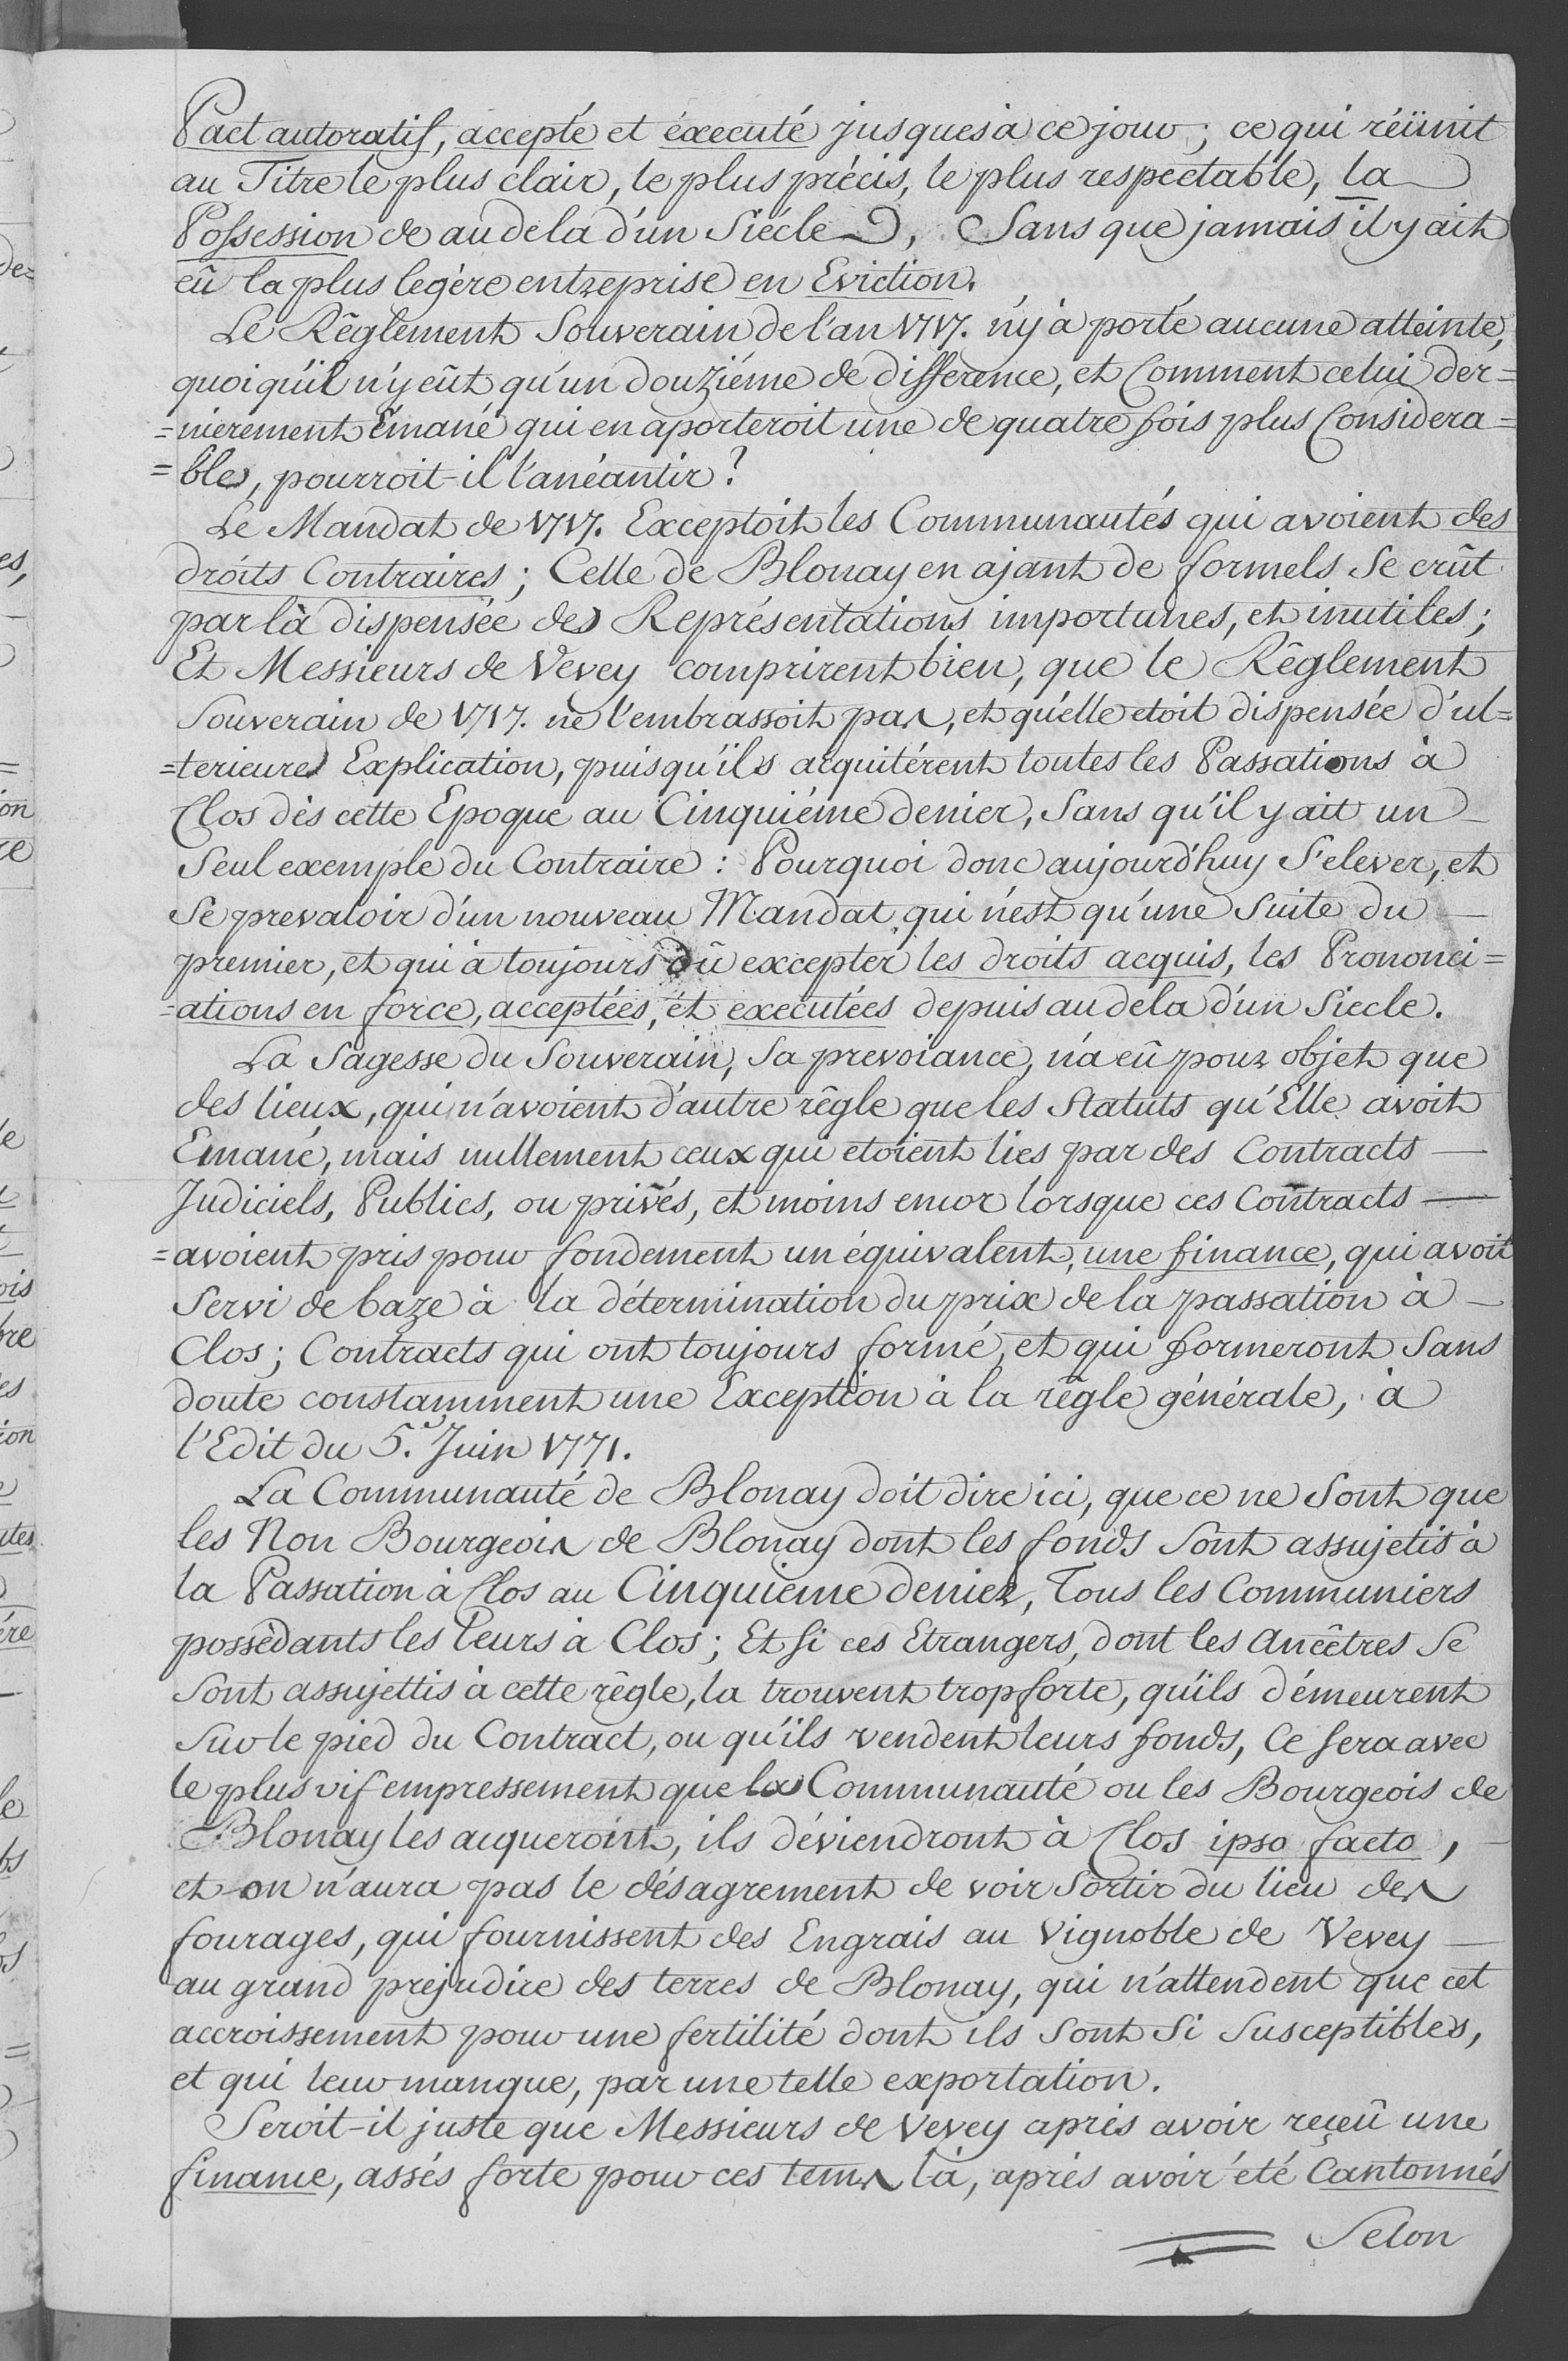 Pact autoratif, accepté et éxecuté jusques à ce jour; ce qui réünit
au Titre le plus clair, le plus précis, le plus respectable, la
Possession de au dela d'un Siécle, Sans que jamais il y ait
eû la plus legére entreprise en Eviction.
Le Rêglement Souverain de l'an 1717. n'y à porté aucune atteinte,
quoiqu'il n'y eût qu'un douziéme de difference, et Comment celui der=
=nierement Emané qui en aporteroit une de quatre fois plus Considera=
=ble, pourroit-il l'anéantir?
Le Mandat de 1717. Exceptoit les Communautés qui avoient des
droits Contraires; Celle de Blonay en ajant de formels Se crût
par là dispensée des Représentations importunes, et inutiles;
Et Messieurs de Vevey comprirent bien, que le Rêglement
Souverain de 1717. ne l'embrassoit pas, et qu'elle etoit dispensée d'ul=
=terieure Explication, puisqu'ils acquitérent toutes les Passations à
Clos dès cette Epoque au Cinquiéme denier, Sans qu'il y ait un
Seul exemple du Contraire: Pourquoi donc aujourd'huy S'elever, et
Se prevaloir d'un nouveau Mandat, qui n'est qu'une Suite du
premier, et qui à toujours dû excepter les droits acquis, les Prononci=
=ations en force, acceptées, et executées depuis au dela d'un Siecle.
La Sagesse du Souverain, Sa prevoiance, n'a eû pour objet que
des lieux, qui n'avoient d'autre règle que les Statuts qu'Elle avoit
Emané, mais nullement ceux qui etoient lies par des Contracts
Judiciels, Publics, ou privés, et moins encor lorsque ces Contracts
=avoient pris pour fondement un équivalent, une finance, qui avoit
Servi de baze à la détermination du prix de la passation à
Clos; Contracts qui ont toujours formé, et qui formeront Sans
doute constamment une Exception à la règle générale, à
l'Edit du 5.e Juin 1771.
La Communauté de Blonay doit dire ici, que ce ne Sont que
les Non Bourgeois de Blonay dont les fonds Sont assujetis à
la Passation à Clos au Cinquieme denier, Tous les Communiers
possèdants les leurs à Clos; Et Si ces Etrangers, dont les Ancêtres Se
Sont assujettis à cette règle, la trouvent trop forte, qu'ils démeurent
Sur le pied du Contract, ou qu'ils vendent leurs fonds, Ce Sera avec
le plus vif empressement que la Communauté ou les Bourgeois de
Blonay les acqueroint, ils déviendront à Clos ipso facto,
et on n'aura pas le désagrement de voir Sortir du lieu des
fourages, qui fournissent des Engrais au Vignoble de Vevey
au grand prejudice des terres de Blonay, qui n'attendent que cet
accroissement pour une fertilité dont ils Sont Si Susceptibles,
et qui leur manque, par une telle exportation.
Seroit-il juste que Messieurs de Vevey aprés avoir reçeû une
finance, assés forte pour ces tems là, aprés avoir été Cantonnés
Selon